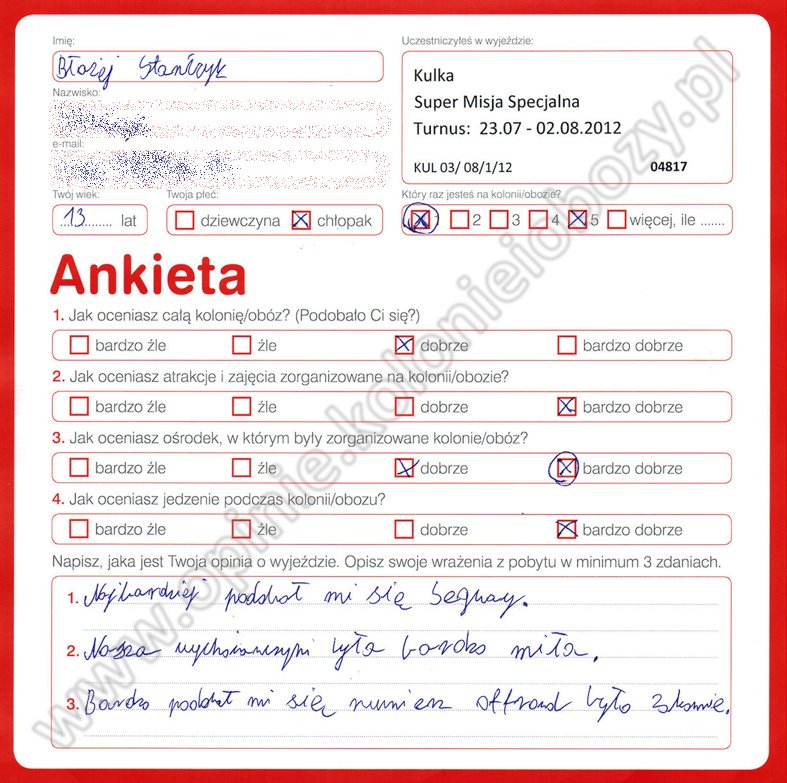 Imię:
Błażej Stańczyk
Nazwisko:
e-mail:
Twój wiek:
13 lat
Twoja płeć:
dziewczyna chłopak
Uczestniczyłeś w wyjeździe:
Kulka
Super Misja Specjalna
Turnus: 23.07 - 02.08.2012
KUL 03/ 08/1/12 04817
Który raz jesteś na kolonii/obozie?
1 2 3 4 5 więcej, ile .......
Ankieta
1. Jak oceniasz całą kolonię/obóz? (Podobało Ci się?)
bardzo źle źle dobrze bardzo dobrze
2. Jak oceniasz atrakcje i zajęcia zorganizowane na kolonii/obozie?
bardzo źle źle dobrze bardzo dobrze
3. Jak oceniasz ośrodek, w którym były zorganizowane kolonie/obóz?
bardzo źle źle dobrze bardzo dobrze
4. Jak oceniasz jedzenie podczas kolonii/obozu?
bardzo źle źle dobrze bardzo dobrze
Napisz, jaka jest Twoja opinia o wyjeździe. Opisz swoje wrażenia z pobytu w minimum 3 zdaniach.
1. Najbardziej podobał mi się Segway.
2. Nasza była bardzo miła.
3. Bardzo podobał mi się offroad było
www.opinie.kolonieiobozy.pl